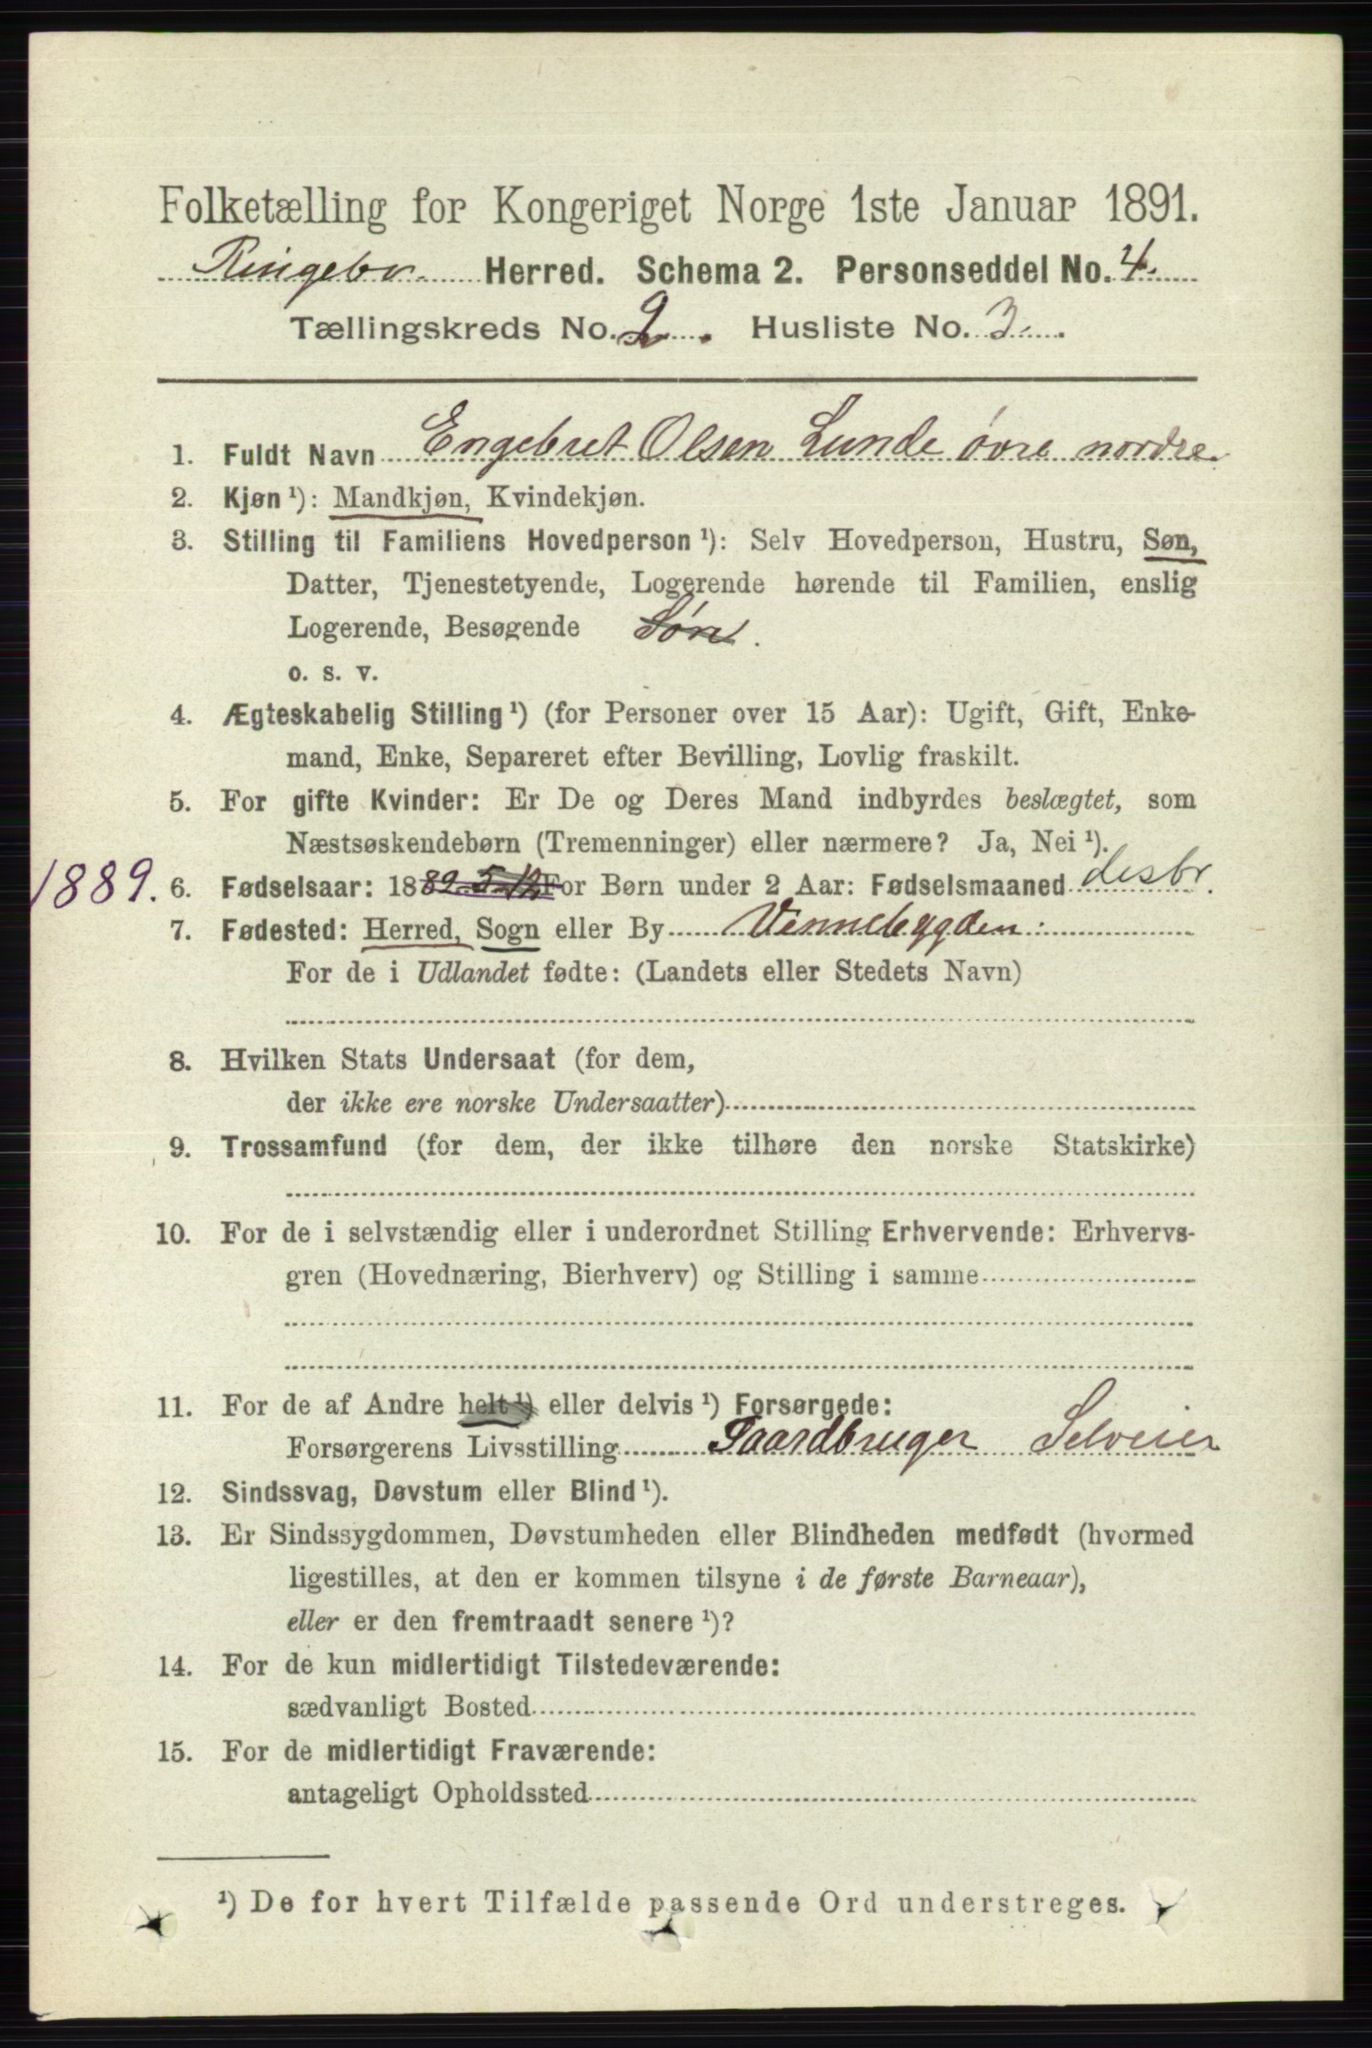 Folketælling for Kongeriget Norge 1ste Januar 1891.
Ringebu Herred. Schema 2. Personseddel No. 4.
Tællingskreds No. 2. Husliste No. 3.
1. Fuldt Navn Engebret Olsen Lunde øvre nordre.
2. Kjøn ¹): Mandkjøn, Kvindekjøn.
3. Stilling til Familiens Hovedperson ¹): Selv Hovedperson, Hustru, Søn,
Datter, Tjenestetyende, Logerende hørende til Familien, enslig
Logerende, Besøgende Søn.
o. s. v.
4. Ægteskabelig Stilling ¹) (for Personer over 15 Aar): Ugift, Gift, Enke-
mand, Enke, Separeret efter Bevilling, Lovlig fraskilt.
5. For gifte Kvinder: Er De og Deres Mand indbyrdes beslægtet, som
Næstsøskendebørn (Tremenninger) eller nærmere? Ja, Nei ¹).
1889. 6. Fødselsaar: 1889 5-12 For Børn under 2 Aar: Fødselsmaaned desbr.
7. Fødested: Herred, Sogn eller By Vennebygden.
For de i Udlandet fødte: (Landets eller Stedets Navn)
8. Hvilken Stats Undersaat (for dem,
der ikke ere norske Undersaatter)
9. Trossamfund (for dem, der ikke tilhøre den norske Statskirke)
10. For de i selvstændig eller i underordnet Stilling Erhvervende: Erhvervs-
gren (Hovednæring, Bierhverv) og Stilling i samme
11. For de af Andre helt ¹) eller delvis ¹) Forsørgede:
Forsørgerens Livsstilling Gaardbruger Selveier
12. Sindssvag, Døvstum eller Blind ¹).
13. Er Sindssygdommen, Døvstumheden eller Blindheden medfødt (hvormed
ligestilles, at den er kommen tilsyne i de første Barneaar),
eller er den fremtraadt senere ¹)?
14. For de kun midlertidigt Tilstedeværende:
sædvanligt Bosted
15. For de midlertidigt Fraværende:
antageligt Opholdssted
¹) De for hvert Tilfælde passende Ord understreges.